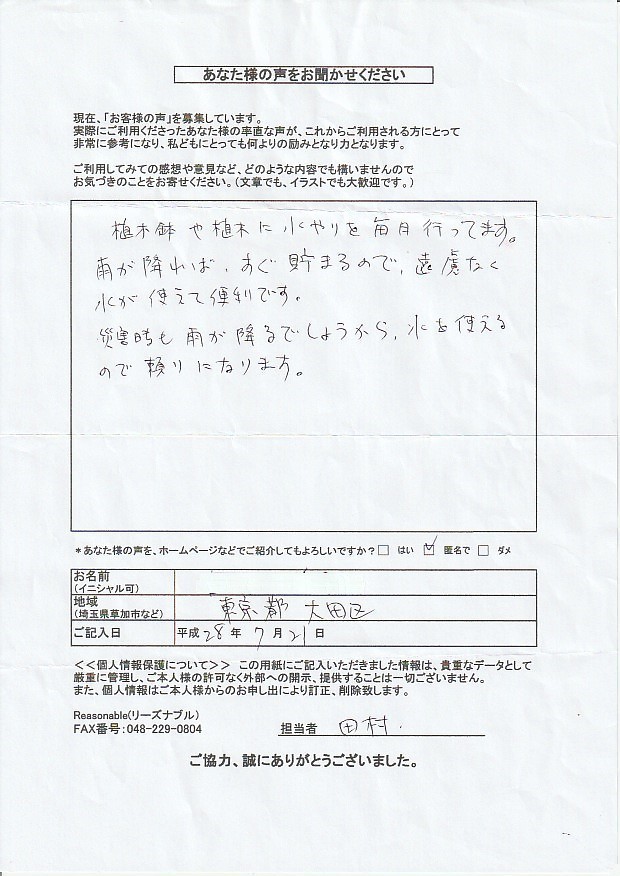 あなた様の声をお聞かせください
現在、「お客様の声」を募集しています。
実際にご利用くださったあなた様の率直な声が、これからご利用される方にとって
非常に参考になり、私どもにとっても何よりの励みとなり力となります。
ご利用してみての感想や意見など、どのような内容でも構いませんので
お気づきのことをお寄せください。(文章でも、イラストでも大歓迎です。)
植木鉢や植木に水やりを毎日行ってます。
雨が降れば、すぐ貯まるので、遠慮なく
水が使えて便利です。
災害時も雨が降るでしょうから、水を使える
ので頼りになります。
*あなた様の声を、ホームページなどでご紹介してもよろしいですか?□ はい ☑ 匿名で □ ダメ
お名前
(イニシャル可)
地域
(埼玉県草加市など) 東京都 大田区
ご記入日 平成28年 7月21日
<<個人情報保護について>> この用紙にご記入いただきました情報は、貴重なデータとして
厳重に管理し、ご本人様の許可なく外部への開示、提供することは一切ございません。
また、個人情報はご本人様からのお申し出により訂正、削除致します。
Reasonable(リーズナブル)
FAX番号:048-229-0804 担当者 田村
ご協力、誠にありがとうございました。